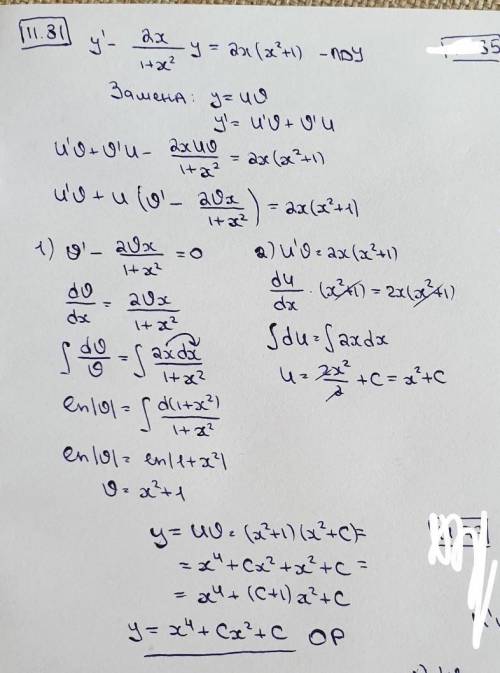 11.31
y' - 2x/(1+x²) y = 2x(x²+1) - ЛДУ
35
Замена: y = uϑ
y' = u'ϑ + ϑ'u
u'ϑ + ϑ'u - 2xuϑ/(1+x²) = 2x(x²+1)
u'ϑ + u(ϑ' - 2ϑx/(1+x²)) = 2x(x²+1)
1) ϑ' - 2ϑx/(1+x²) = 0
dϑ/dx = 2ϑx/(1+x²)
∫ dϑ/ϑ = ∫ 2xdx/(1+x²)
ln|ϑ| = ∫ d(1+x²)/(1+x²)
ln|ϑ| = ln|1+x²|
ϑ = x²+1
2) u'ϑ = 2x(x²+1)
du/dx · (x²+1) = 2x(x²+1)
∫du = ∫2xdx
u = 2x²/2 + C = x²+C
y = uϑ = (x²+1)(x²+C) =
= x⁴ + Cx² + x² + C =
= x⁴ + (C+1)x² + C
y = x⁴ + Cx² + C ОР